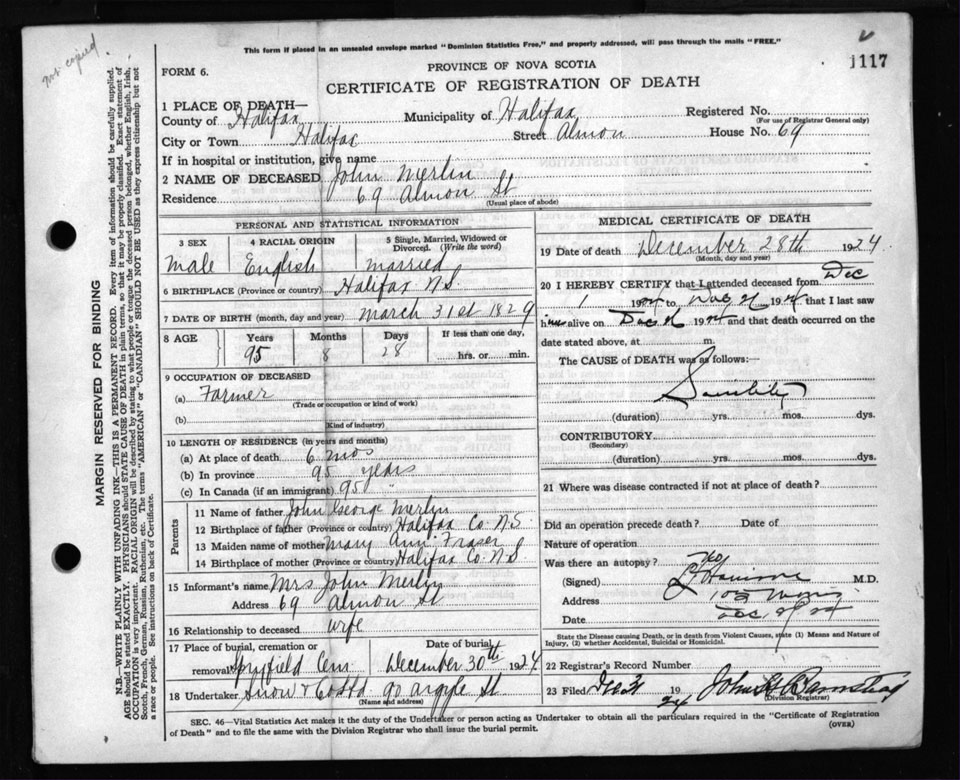 not copied
This form if placed in an unsealed envelope marked "Dominion Statistics Free," and properly addressed, will pass through the mails "FREE."
1117
FORM 6.
PROVINCE OF NOVA SCOTIA
CERTIFICATE OF REGISTRATION OF DEATH
1 PLACE OF DEATH—
County of Halifax Municipality of Halifax Registered No.
(For use of Registrar General only)
City or Town Halifax Street Almon House No. 69
If in hospital or institution, give name
2 NAME OF DECEASED John Merlin
Residence 69 Almon St
(Usual place of abode)
PERSONAL AND STATISTICAL INFORMATION
3 SEX 4 RACIAL ORIGIN 5 Single, Married, Widowed or Divorced. (Write the word)
Male English married
6 BIRTHPLACE (Province or country) Halifax N.S.
7 DATE OF BIRTH (month, day and year) March 31st 1829
8 AGE Years Months Days If less than one day,
95 8 28 hrs. or min.
9 OCCUPATION OF DECEASED
(a) Farmer
(Trade or occupation or kind of work)
(b)
(Kind of industry)
10 LENGTH OF RESIDENCE (in years and months)
(a) At place of death 6 mos
(b) In province 95 years
(c) In Canada (if an immigrant) 95 "
Parents
11 Name of father John George Merlin
12 Birthplace of father (Province or country) Halifax Co. N.S.
13 Maiden name of mother Mary Ann Fraser
14 Birthplace of mother (Province or country) Halifax Co. N.S
15 Informant's name Mrs John Merlin
Address 69 Almon St
16 Relationship to deceased wife
17 Place of burial, cremation or removal Spryfield Cem Date of burial December 30th 1924
18 Undertaker Snow & Co Ltd 90 Argyle St
(Name and address)
MEDICAL CERTIFICATE OF DEATH
19 Date of death December 28th 1924
(Month, day and year)
20 I HEREBY CERTIFY that I attended deceased from Dec
1 1924 to Dec 1924 that I last saw
him alive on Dec 1924 and that death occurred on the
date stated above, at m.
The CAUSE OF DEATH was as follows:—
Senility
(duration) yrs. mos. dys.
CONTRIBUTORY
(Secondary)
(duration) yrs. mos. dys.
21 Where was disease contracted if not at place of death?
Did an operation precede death? Date of
Nature of operation
Was there an autopsy? No
(Signed) M.D.
Address
Date Dec
State the Disease causing Death, or in death from Violent Causes, state (1) Means and Nature of Injury, (2) whether Accidental, Suicidal or Homicidal.
22 Registrar's Record Number
23 Filed Dec 31 1924 John H Barnstead
(Division Registrar)
SEC. 46—Vital Statistics Act makes it the duty of the Undertaker or person acting as Undertaker to obtain all the particulars required in the "Certificate of Registration
of Death" and to file the same with the Division Registrar who shall issue the burial permit.
(OVER)
MARGIN RESERVED FOR BINDING
N.B.—WRITE PLAINLY WITH UNFADING INK—THIS IS A PERMANENT RECORD. Every item of information should be carefully supplied.
AGE should be stated EXACTLY. PHYSICIANS should STATE CAUSE OF DEATH in plain terms, so that it may be properly classified. Exact statement of
OCCUPATION is very important. RACIAL ORIGIN will be described by stating to what people or tongue the deceased person belonged, whether English, Irish,
Scotch, French, German, Russian, Ruthenian, etc. The terms "AMERICAN" or "CANADIAN" SHOULD NOT BE USED as they express citizenship but not
a race or people. See instructions on back of Certificate.